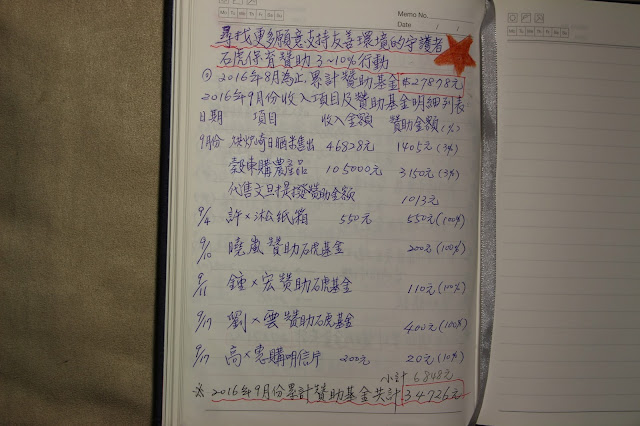 Memo No.
Mo Tu We Th Fr Sa Su
Date / /
尋找更多願意支持友善環境的守護者
石虎保育贊助3~10%行動
2016年8月為止累計贊助基金$27878元
2016年9月份收入項目及贊助基金明細列表
日期 項目 收入金額 贊助金額(%)
9月份 烘炉崎日晒米售出 46828元 1405元(3%)
穀東購農產品 105000元 3150元(3%)
代售文旦提撥贊助金額 1013元
9/4 許×淞紙箱 550元 550元(100%)
9/10 曉嵐贊助石虎基金 200元(100%)
9/11 鍾×宏贊助石虎基金 110元(10%)
9/17 劉×雲贊助石虎基金 400元(100%)
9/17 高×惠購明信片 200元 20元(10%)
小計 6848元
※ 2016年9月份累計贊助基金共計34726元
Mo Tu We Th Fr Sa Su